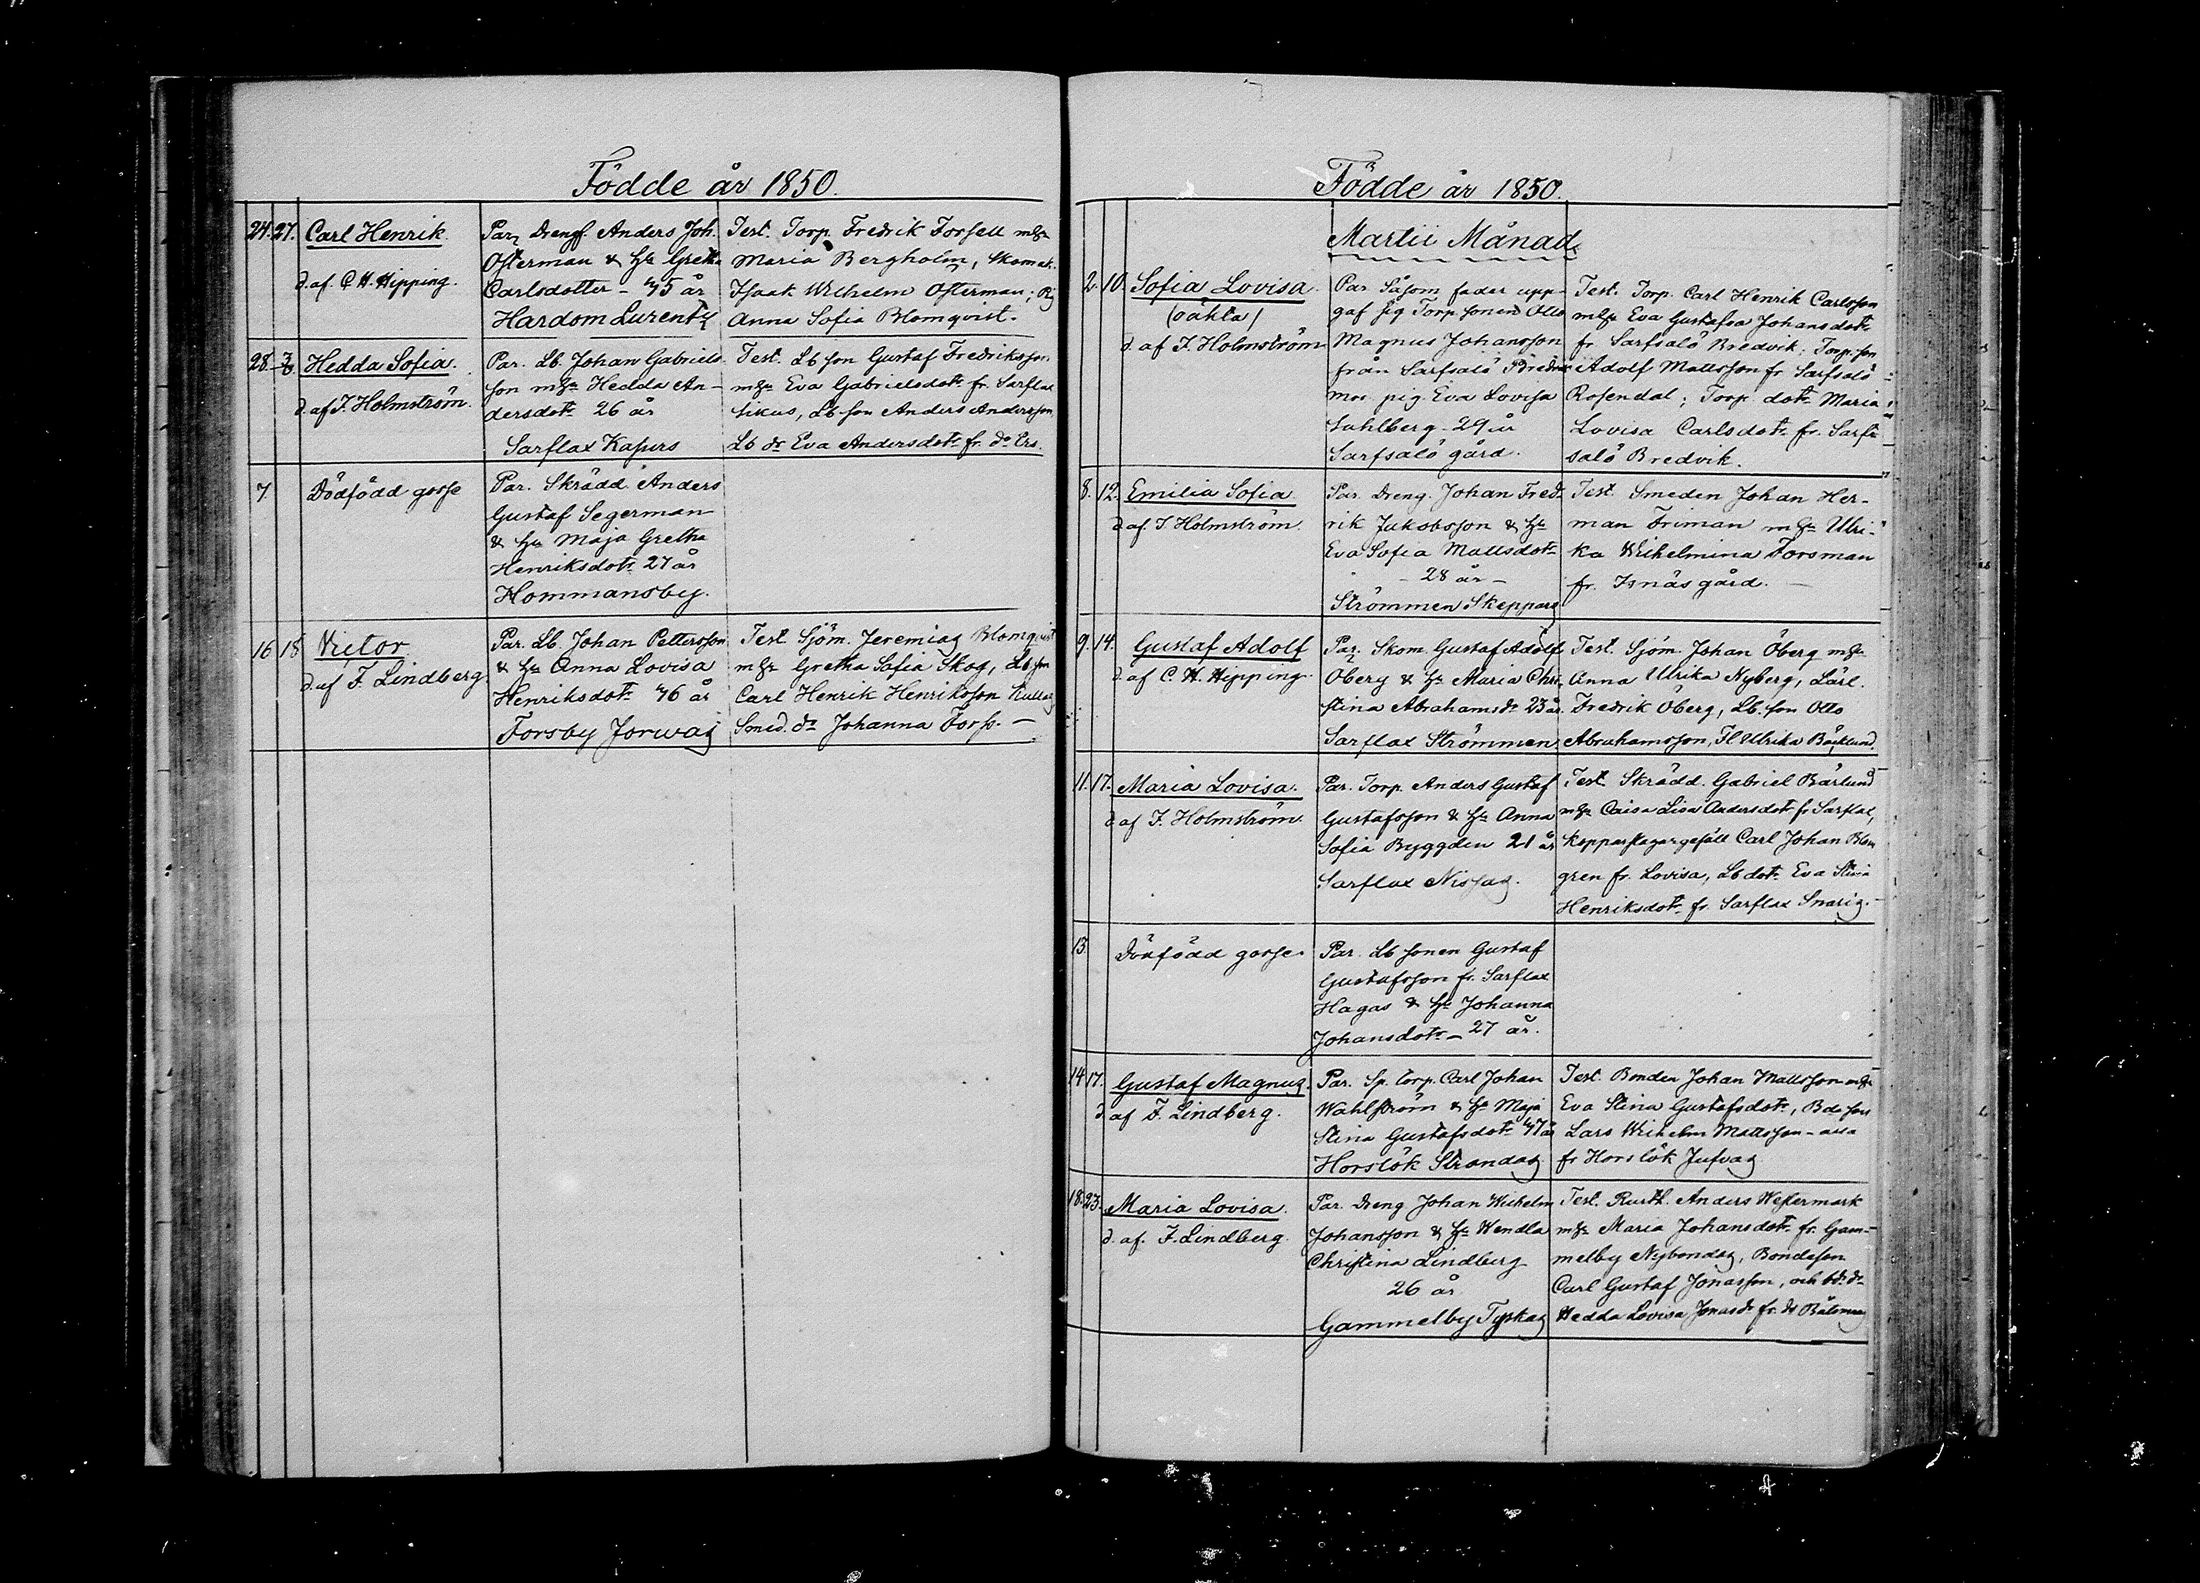 Födde år 1850.
24. 27. Carl Henrik.
d. af. C. H. Hipping.
Par. Dreng. Anders Joh.
Osterman & hu Greta
Carlsdotter - 45 år
Hardom Lurents
Test. Torp. Fredrik Forsell mhu
Maria Bergholm, Skomak.
Isaak Wilhelm Osterman; Pig
Anna Sofia Blomqvist.
28. 3/3 Hedda Sofia.
d. af F. Holmström.
Par. Lb. Johan Gabriels-
son mhu Hedda An-
dersdotr 26 år
Sarflax Kapers
Test. Lb son Gustaf Fredriksson
mhu Eva Gabrielsdotr fr. Sarflax
Sikus, Lb. son Anders Andersson
Lb dr Eva Andersdotr fr. do Ers.
7 Dödfödd gosse
Par. Skrädd. Anders
Gustaf Segerman
& hu Maja Gretha
Henriksdotr 27 år
Hommansby.
16 18 Victor
d. af F. Lindberg
Par. Lb. Johan Pettersson
& hu Anna Lovisa
Henriksdotr 46 år
Forsby Jorwas
Test. Sjöm. Jeremias Blomqvist
mhu Gretha Sofia Skog, Lb son
Carl Henrik Henriksson Kullas
Smed. dr Johanna Forss. -
Födde år 1850.
Martii Månad.
2. 10. Sofia Lovisa.
(oäkta)
d. af F. Holmström
Par. Såsom fader upp-
gaf sig Torp. sonen Otto
Magnus Johansson
från Sarfsalö Bredvik
mor. pig. Eva Lovisa
Sahlberg - 29 år
Sarfsalö gård.
Test. Torp. Carl Henrik Carlsson
mhu Eva Gustafva Johansdotr
fr. Sarfsalö Bredvik; Torp. son
Adolf Mattsson fr. Sarfsalö
Rosendal; Torp. dotr Maria
Lovisa Carlsdotr fr. Sarf-
salö Bredvik.
8. 12. Emilia Sofia
d. af F. Holmström.
Par. Dreng. Johan Fred-
rik Jakobsson & hu
Eva Sofia Mattsdotr
- 28 år -
Strömmen Skeppars
Test. Smeden Johan Her-
man Friman mhu Ulri-
ka Wilhelmina Forsman
fr. Isnäs gård. -
9. 14. Gustaf Adolf
d. af C. H. Hipping.
Par. Skom. Gustaf Adolf
Öberg & hu Maria Chri-
stina Abrahamsdr 23 år.
Sarflax Strömmen.
Test. Sjöm. Johan Öberg mhu
Anna Ulrika Nyberg, Lärl.
Fredrik Öberg, Lb. son Otto
Abrahamsson, Fl Ulrika Bäcklund.
11. 17. Maria Lovisa.
d. af F. Holmström.
Par. Torp. Anders Gustaf
Gustafsson & hu Anna
Sofia Byggdén 21 år
Sarflax Nissas.
Test. Skrädd. Gabriel Bärlund
mhu Caisa Lisa Andersdotr fr. Sarflax,
kopparslagargesäll Carl Johan Blom
gren fr. Lovisa, Lb dotr Eva Stina
Henriksdotr fr. Sarflax Snarig. -
13. Dödfödd gosse.
Par. Lb sonen Gustaf
Gustafsson fr. Sarflax
Hagas & hu Johanna
Johansdotr - 27 år.
14 17. Gustaf Magnus.
d. af F. Lindberg.
Par. Sp. torp. Carl Johan
Wahlström & hu Maja
Stina Gustafsdotr 47 år
Horslök Strandas
Test. Bonden Johan Mattsson mhu
Eva Stina Gustafsdotr, Bde son
Lars Wilhelm Mattsson - alla
fr Horslök Jufvas
18. 23. Maria Lovisa.
d. af. F. Lindberg.
Par. Dreng Johan Wilhelm
Johansson & hu Wendla
Christina Lindberg
26 år
Gammelby Tyskas
Test. Rusth. Anders Westermark
mhu Maria Johansdotr fr. Gam-
melby Nybondas, Bondeson
Carl Gustaf Jonasson, och bde dr
Hedda Lovisa Jonasdr fr. do Båtsmans